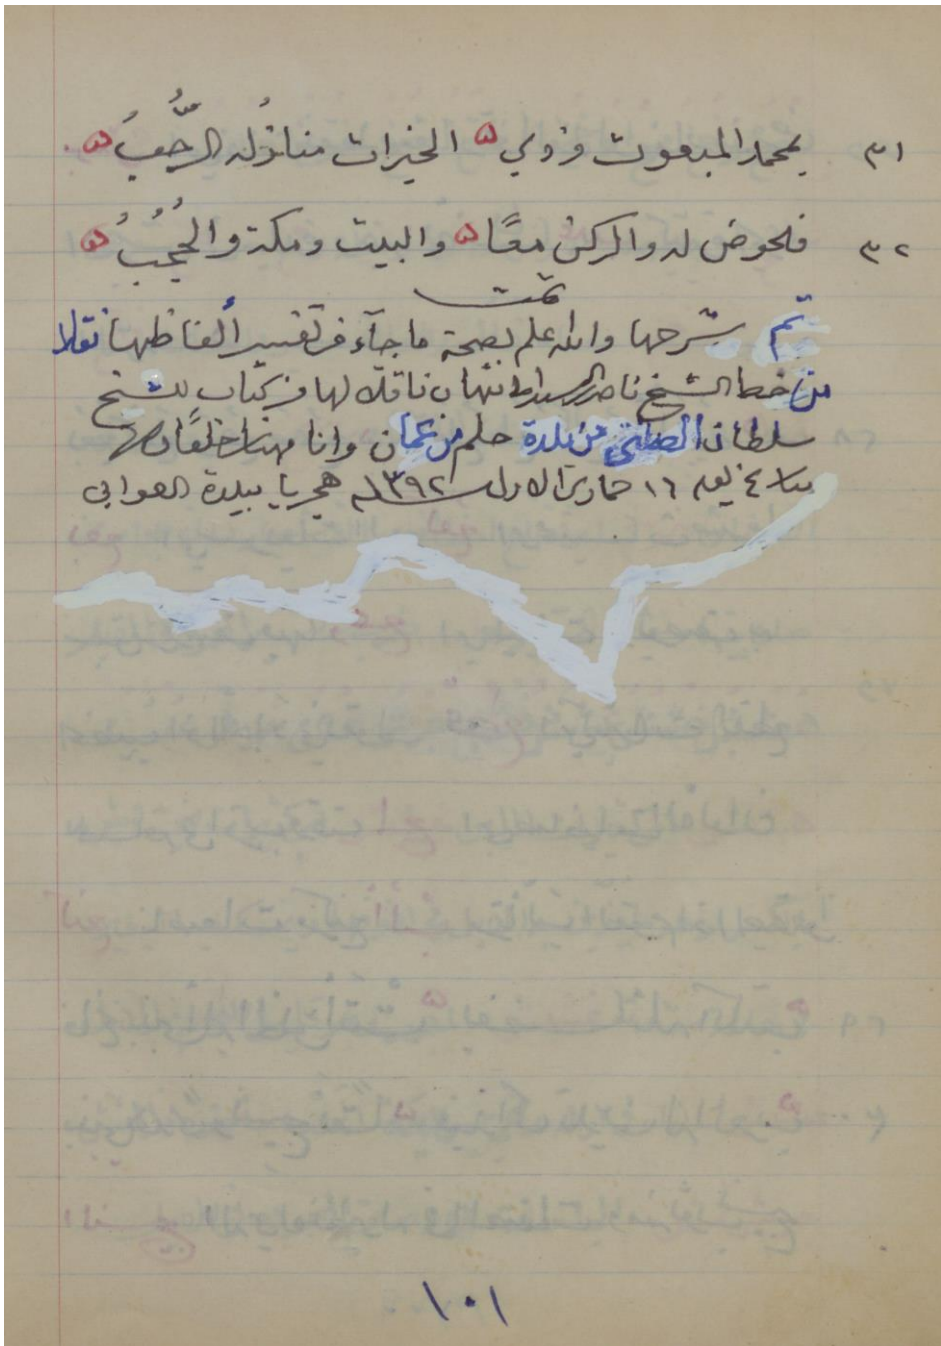 ٣١ بمحمد المبعوث وذوي ه الخيرات منازلُه الرُّحُبُ ه
٣٢ فلحوض له والركن معًا ه والبيت ومكة والحُجُبُ ه
تمت
تم شرحها والله علم بصحة ما جآء في تفسير ألفاظها نقلا
من خط الشيخ ناصر نبهان ناقلا لها من كتاب للشيخ
سلطان من بلدة حلم من عمان وانا مهنا بن خلفان
١٦ جمادى الاول سـ١٣٩٢ـنة هجريا ببلدة العوابي
١٠١